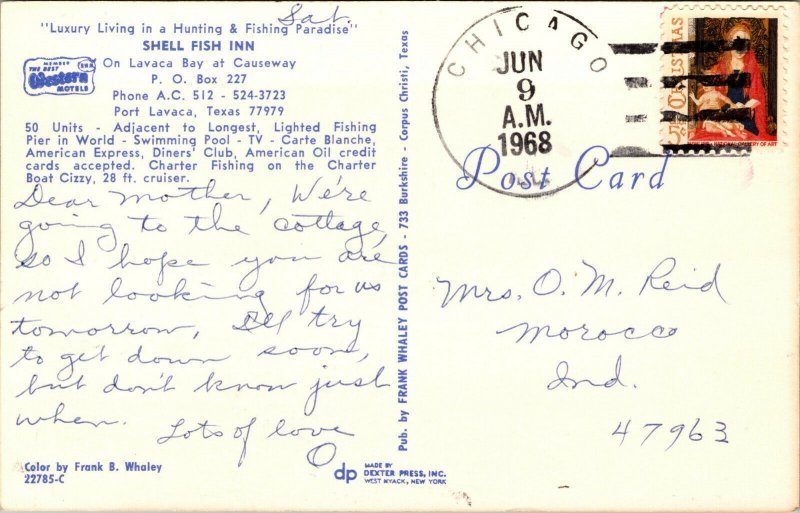 Sat.
"Luxury Living in a Hunting & Fishing Paradise"
SHELL FISH INN
On Lavaca Bay at Causeway
P. O. Box 227
Phone A.C. 512 - 524-3723
Port Lavaca, Texas 77979
MEMBER
THE BEST
Western
MOTELS
50 Units - Adjacent to Longest, Lighted Fishing
Pier in World - Swimming Pool - TV - Carte Blanche,
American Express, Diners' Club, American Oil credit
cards accepted. Charter Fishing on the Charter
Boat Cizzy, 28 ft. cruiser.
Dear Mother, We're
going to the cottage,
so I hope you are
not looking for us
tomorrow, I'll try
to get down soon,
but don't know just
when.
Lots of love
O
Color by Frank B. Whaley
22785-C
Pub. by FRANK WHALEY POST CARDS - 733 Burkshire - Corpus Christi, Texas
dp
MADE BY
DEXTER PRESS, INC.
WEST NYACK, NEW YORK
CHICAGO
JUN
9
A.M.
1968
ILL.
CHRISTMAS
NATIONAL GALLERY OF ART
Post Card
Mrs. O. M. Reid
Morocco
Ind.
47963